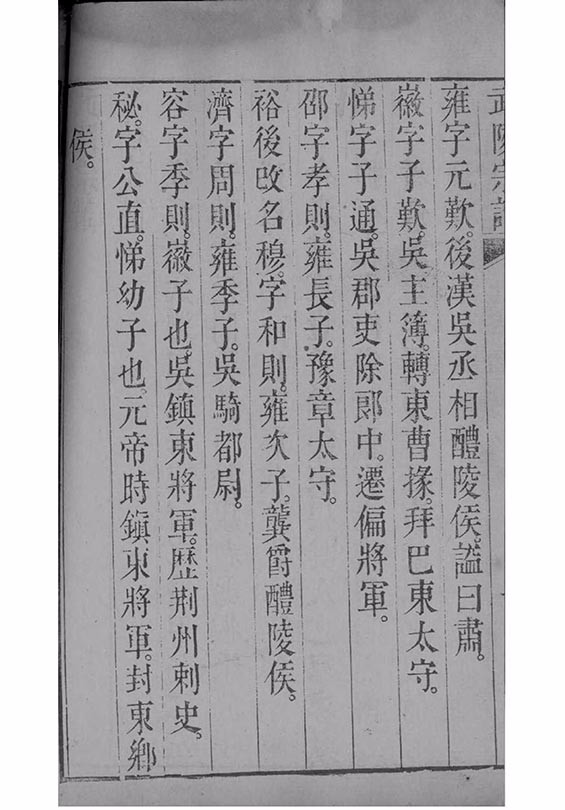 武陵宗譜
雍字元歎。後漢吳丞相醴陵侯。謚曰肅。
徽字子歎。吳主簿。轉東曹掾。拜巴東太守。
悌字子通。吳郡吏除郎中。遷偏將軍。
邵字孝則。雍長子。豫章太守。
裕後改名穆。字和則。雍次子。襲爵醴陵侯。
濟字周則。雍季子。吳騎都尉。
容字季則。徽子也。吳鎮東將軍。歷荆州刺史。
秘。字公直。悌幼子也。元帝時鎮東將軍。封東鄉
侯。